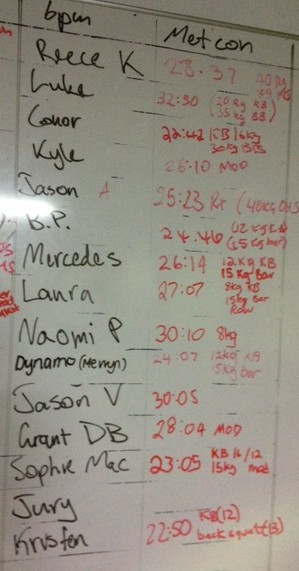 bpm Metcon
Reece K 28.37
Luke 32:50 (20 kg KB
35 kg BB)
Conor 22:42 KB 16kg
30kg
Kyle 26:10 MOD
Jason A 25:23 Rx (40kg
B.P. 24.46 (12 kg KB
(15 kg bar)
Mercedes 26:14 12kg KB
15 kg bar
Laura 27:07 8kg KB
15kg bar
Row
Naomi P 30:10 8kg
Dynamo (Mervyn) 24:07 12kg KB
15kg bar
Jason V 30:05
Grant DB 28:04 MOD
Sophie Mac 23:05 KB 16/12
15kg mod
Jury
Kristen 22:50 KB(12)
back squat (13)